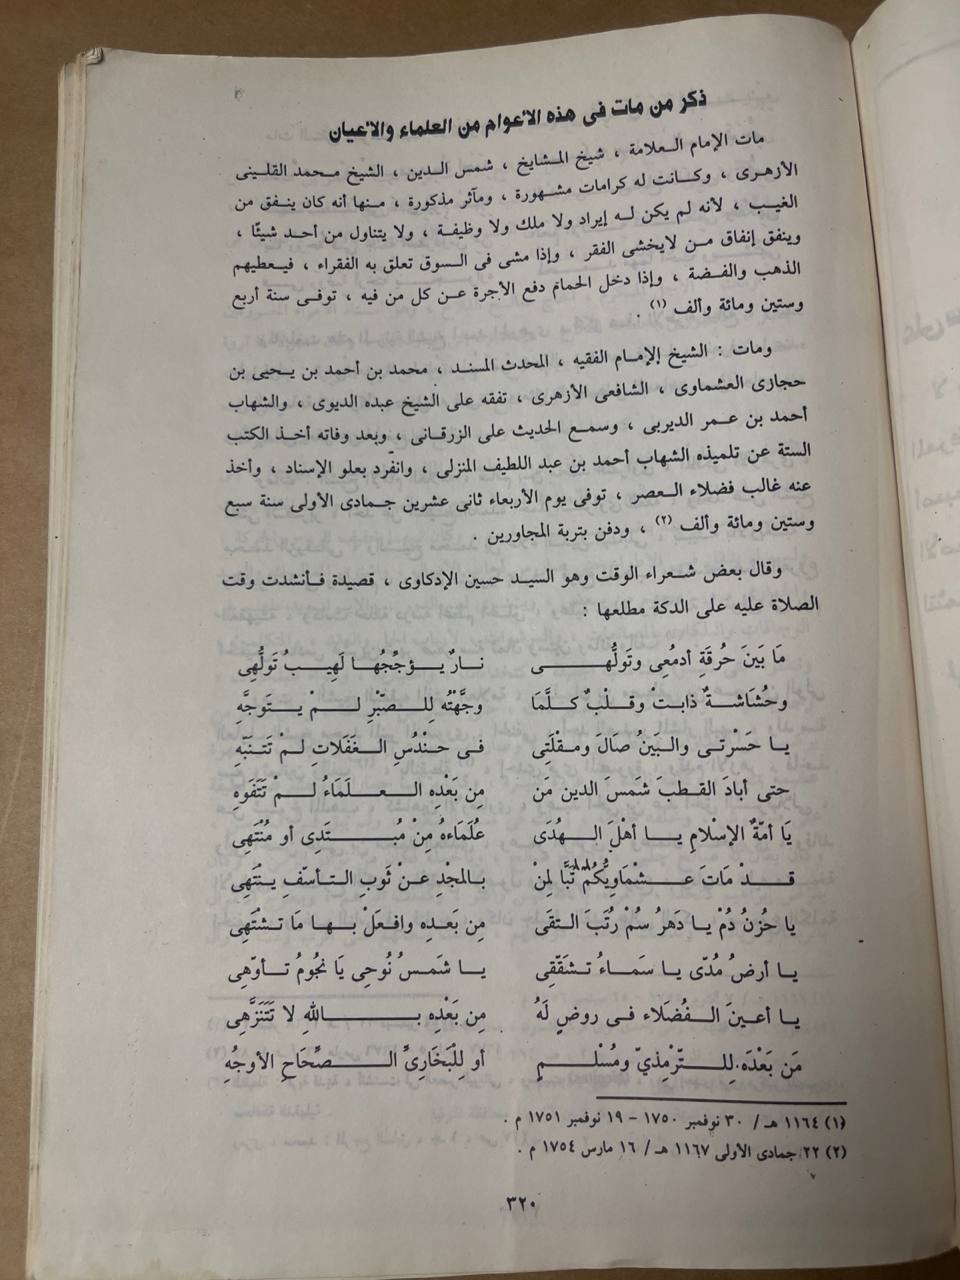 ذكر من مات فى هذه الأعوام من العلماء والأعيان
مات الإمام العلامة ، شيخ المشايخ ، شمس الدين ، الشيخ محمد القلينى
الأزهرى ، وكانت له كرامات مشهورة ، ومآثر مذكورة ، منها أنه كان ينفق من
الغيب ، لأنه لم يكن له إيراد ولا ملك ولا وظيفة ، ولا يتناول من أحد شيئًا ،
وينفق إنفاق من لايخشى الفقر ، وإذا مشى فى السوق تعلق به الفقراء ، فيعطيهم
الذهب والفضة ، وإذا دخل الحمام دفع الأجرة عن كل من فيه ، توفى سنة أربع
وستين ومائة وألف (١) .
ومات : الشيخ الإمام الفقيه ، المحدث المسند ، محمد بن أحمد بن يحيى بن
حجازى العشماوى ، الشافعى الأزهرى ، تفقه على الشيخ عبده الديوى ، والشهاب
أحمد بن عمر الديربى ، وسمع الحديث على الزرقانى ، وبعد وفاته أخذ الكتب
الستة عن تلميذه الشهاب أحمد بن عبد اللطيف المنزلى ، وانفرد بعلو الإسناد ، وأخذ
عنه غالب فضلاء العصر ، توفى يوم الأربعاء ثانى عشرين جمادى الأولى سنة سبع
وستين ومائة وألف (٢) ، ودفن بتربة المجاورين .
وقال بعض شعراء الوقت وهو السيد حسين الإدكاوى ، قصيدة فأنشدت وقت
الصلاة عليه على الدكة مطلعها :
مَا بَينَ حُرقَةِ أدمُعِى وتَولُّهى نارٌ يؤجِّجُهَا لَهِيبُ تَولُّهِى
وحُشَاشةٌ ذابتْ وقلْبٌ كلَّمَا وجَّهْتُه لِلصّبْرِ لمْ يتوجَّهِ
يا حَسْرتى والبَينُ صَالَ ومقْلَتِى فى حنْدُسِ الغَفَلاتِ لمْ تَتنَبّهِ
حتى أبادَ القطبَ شَمسَ الدين مَن مِن بَعْدِه العلَمَاءُ لمْ تَتَفَوهِ
يَا أمّةُ الإسْلامِ يا أهْلَ الهُدَى عُلَمَاءهُ مِنْ مُبتَدِى أو مُنْتَهِى
قدْ مَاتَ عشْمَاوِيكُمْ تَبًّا لمِنْ بالمجْدِ عنْ ثَوبِ التأسّفِ ينْتَهِى
يا حُزنُ دُمْ يا دَهرُ سُمْ رُتَبَ التقَى مِن بَعدِه وافعَلْ بها مَا تشْتَهِى
يا أرضُ مُدّى يا سَماءُ تشَقّقِى يا شَمسُ نُوحِى يَا نجُومُ تأوّهِى
يا أعينَ الفُضَلاء فى روضٍ لَهُ مِن بَعْدِه باللهِ لا تَتَنَزَّهِى
مَن بَعْدَه لِلتّرْمِذىّ ومُسْلمٍ أو لِلْبَخَارِىِّ الصِّحَاحِ الأوجُهِ
(١) ١١٦٤ هـ / ٣٠ نوفمبر ١٧٥٠ - ١٩ نوفمبر ١٧٥١ م .
(٢) ٢٢ جمادى الأولى ١١٦٧ هـ / ١٦ مارس ١٧٥٤ م .
٣٢٠